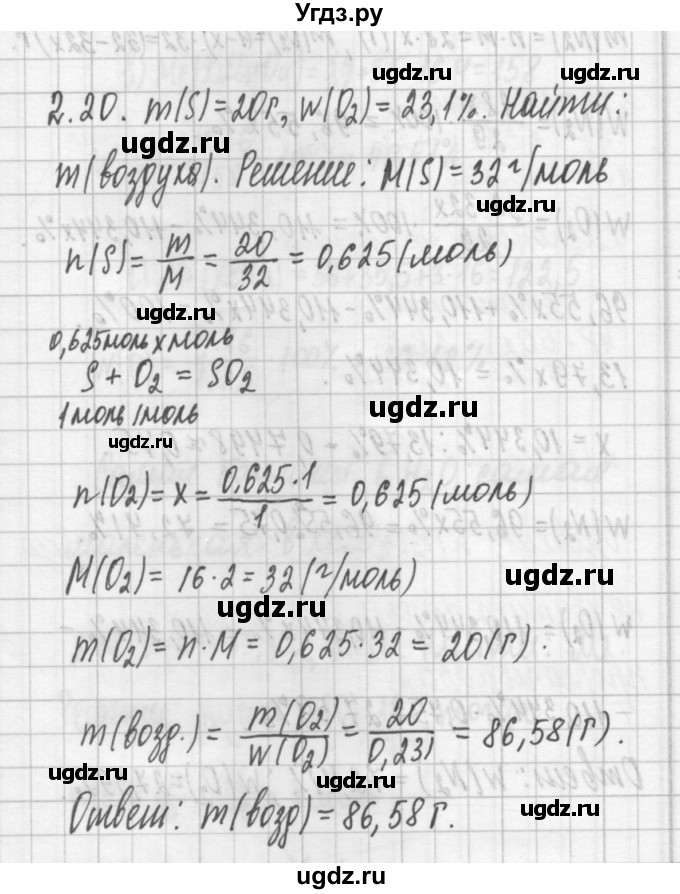 Угдз.ру
ugdz.ru
2.20. m(S)=20г, w(O₂)=23,1%. Найти:
ugdz.ru
m(воздуха). Решение: M(S)=32 г/моль
ugdz.ru
n(S)= m/M = 20/32 = 0,625 (моль)
ugdz.ru
0,625 моль x моль
S + O₂ = SO₂
1 моль 1 моль
ugdz.ru
ugdz.ru
n(O₂)= x = 0,625·1/1 = 0,625 (моль)
M(O₂)= 16·2 = 32 (г/моль)
ugdz.ru
ugdz.ru
m(O₂)= n·M = 0,625·32 = 20(г).
m(возд.)= m(O₂)/w(O₂) = 20/0,231 = 86,58(г).
ugdz.ru
ugdz.ru
Ответ: m(возд)=86,58 г.
ugdz.ru